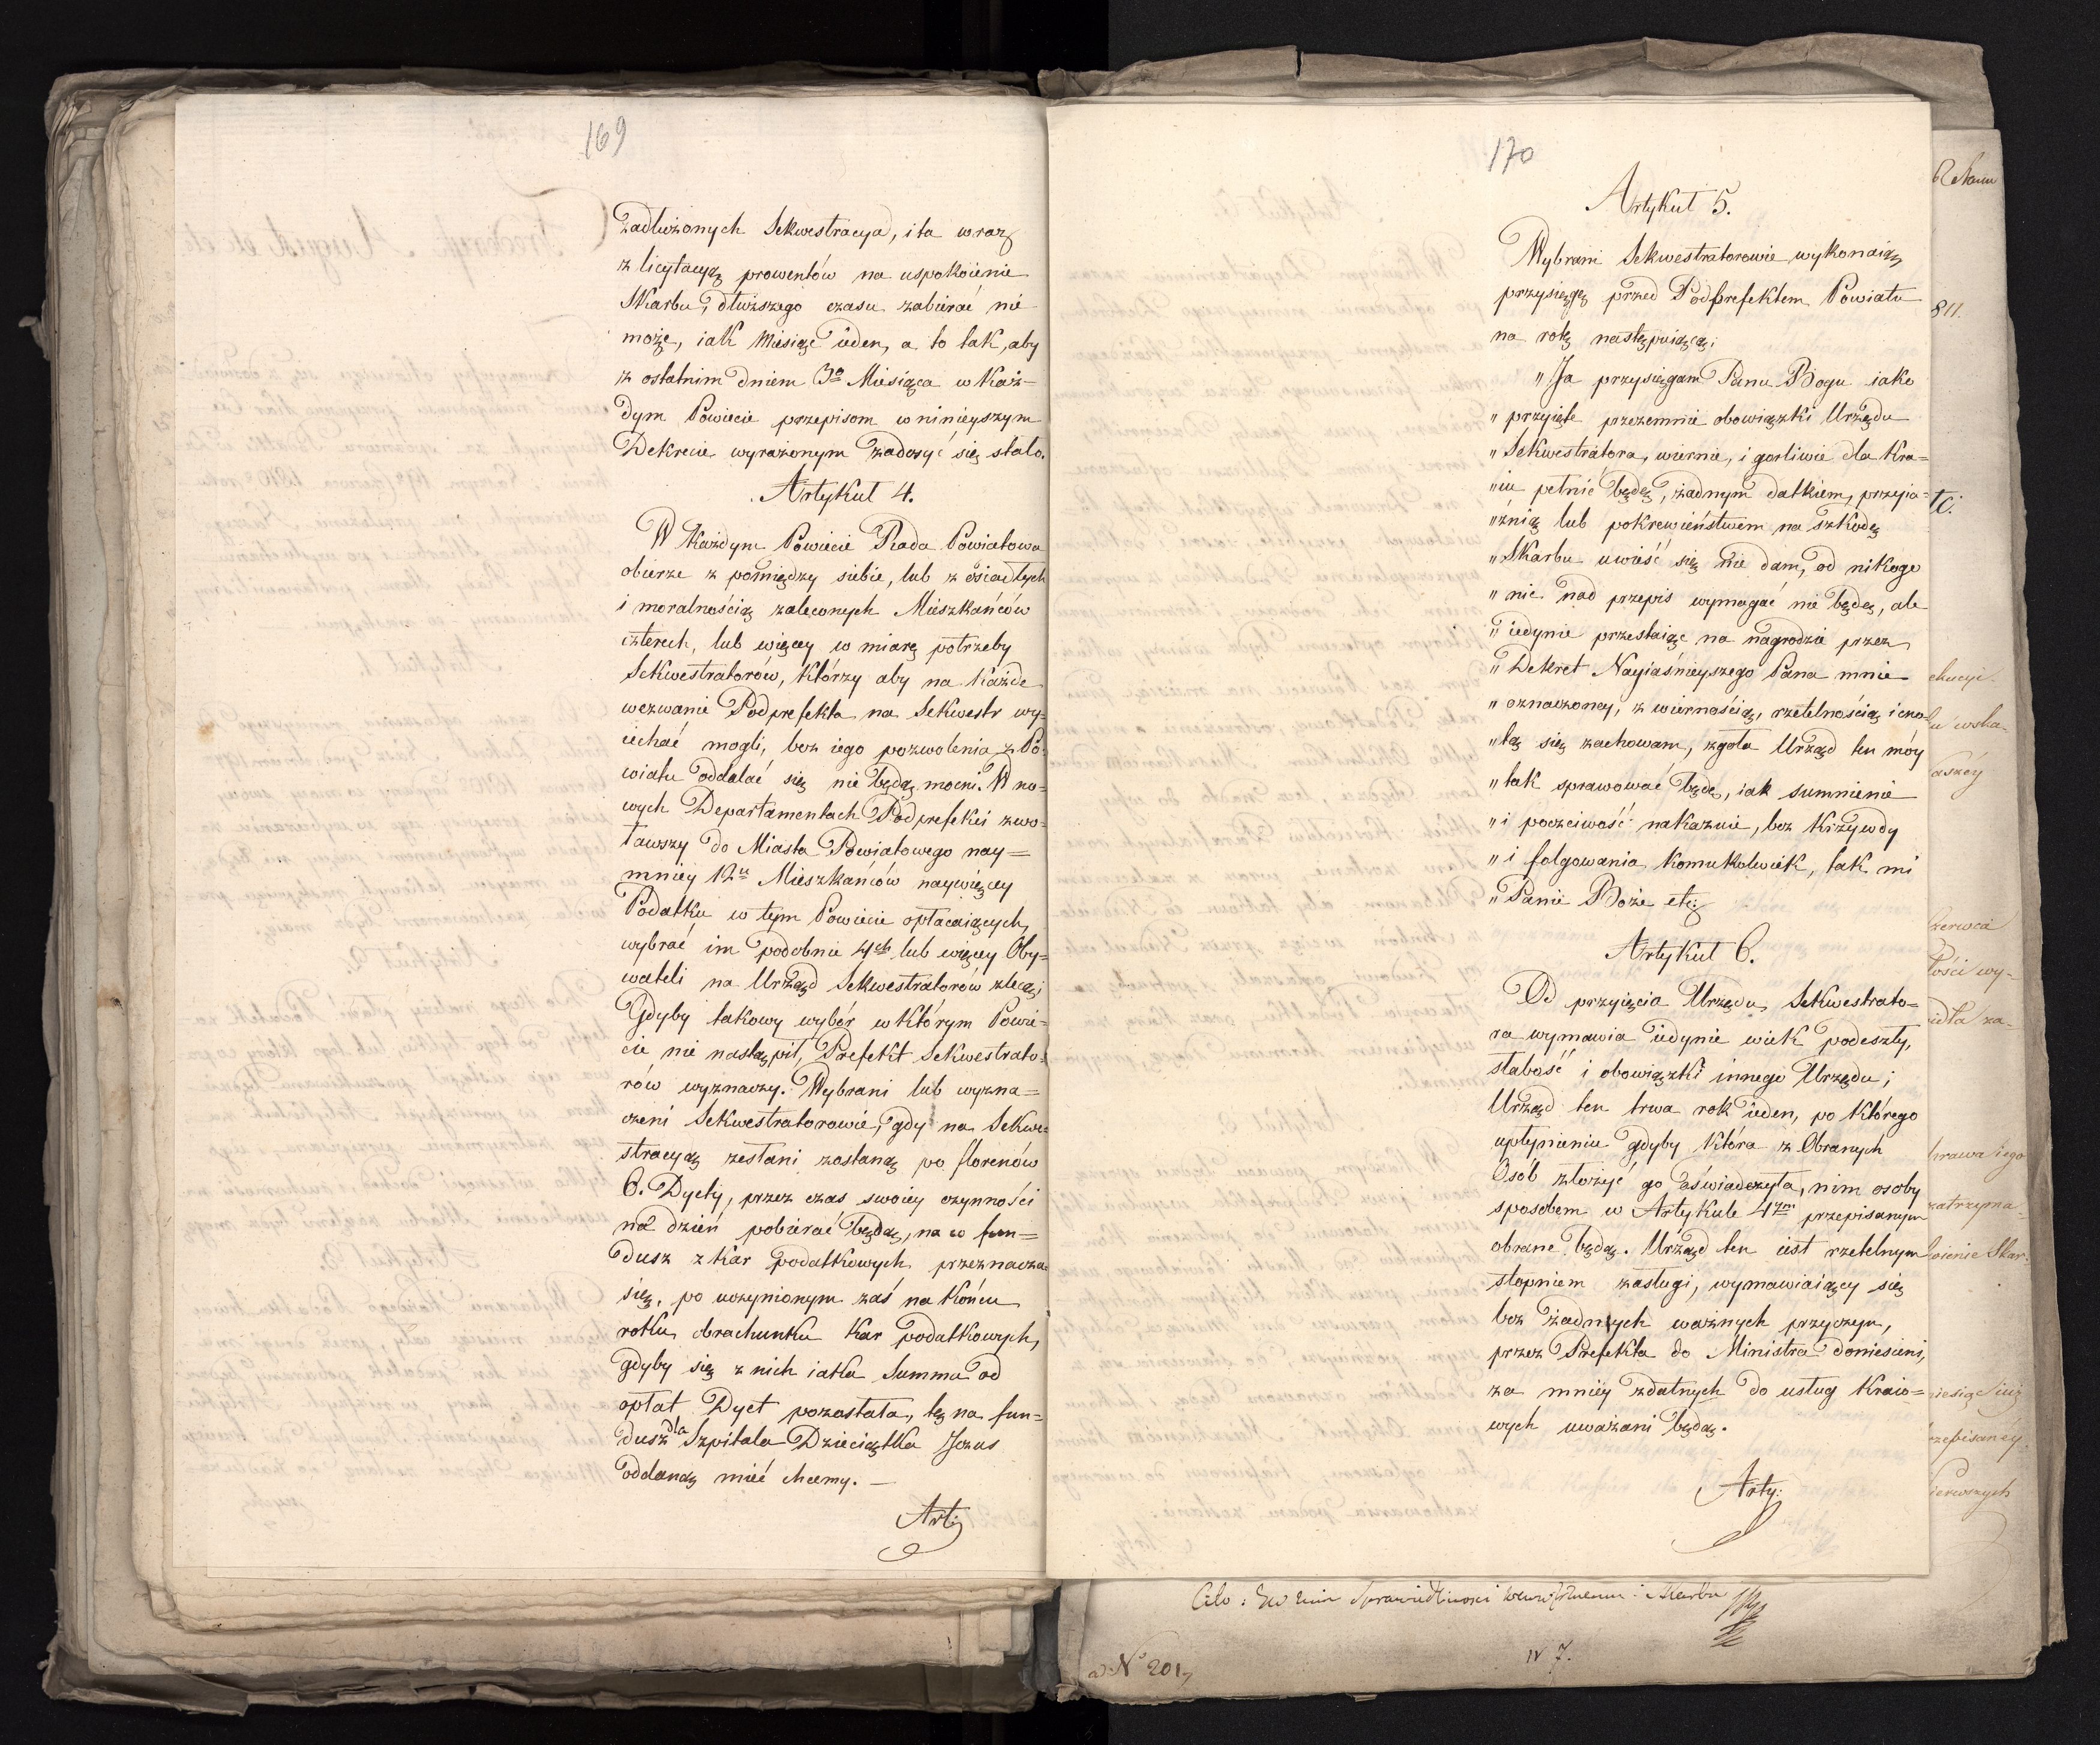 169
zadłużonych Sekwestracya, i ta wraz
z licytacyą prowentów na uspokoienie
Skarbu, dłuższego czasu zabierać nie
może, iak Miesiąc ieden, a to tak, aby
z ostatnim dniem 3o Miesiąca w Każ=
dym Powiecie przepisom w ninieyszym
Dekrecie wyrażonym zadosyć się stało.
Artykuł 4.
W Każdym Powiecie Rada Powiatowa
obierze z pomiędzy siebie, lub z osiadłych
i moralnością zaleconych Mieszkańców
czterech, lub więcey w miarę potrzeby
Sekwestratorów, Którzy aby na Każde
wezwanie Podprefekta na Sekwestr wy=
iechać mogli, bez iego pozwolenia z Po=
wiatu oddalać się nie będą mocni. W no=
wych Departamentach Podprefekci zwo=
ławszy do Miasta Powiatowego nay=
mniey 12u Mieszkańców naywięcey
Podatku w tym Powiecie opłacaiących,
wybrać im podobnie 4ch lub więcey Oby=
wateli na Urząd Sekwestratorów zlecą;
Gdyby takowy wybór w Którym Powie=
cie nie nastąpił, Prefekt Sekwestrato=
rów wyznaczy. Wybrani lub wyzna=
czeni Sekwestratorowie, gdy na Sekwe=
stracyą zesłani zostaną po florenów
6. Dyety, przez czas swoiey czynności
na dzień pobierać będą, na co fun=
dusz z Kar podatkowych przeznacza
się, po uczynionym zaś na Końcu
roku obrachunku Kar podatkowych,
gdyby się z nich iaka Summa od
opłat Dyet pozostała, tę na fun=
dusz dla Szpitala Dzieciątka Jezus
oddaną mieć chcemy. —
Art:
170
Artykuł 5.
Wybrani Sekwestratorowie wykonaią
przysięgę przed Podprefektem Powiatu
na rotę następuiącą;
"Ja przysięgam Panu Bogu iako
" przyięte przezemnie obowiązki Urzędu
" Sekwestratora, wiernie, i gorliwie dla Kra=
" iu pełnić będę, żadnym datkiem, przyia=
" źnią lub pokrewieństwem na szkodę
" Skarbu uwieść się nie dam, od nikogo
" nic nad przepis wymagać nie będę, ale
" iedynie przestaiąc na nagrodzie przez
" Dekret Nayiaśnieyszego Pana mnie
" oznaczoney, z wiernością, rzetelnością i cno=
" tą się zachowam, zgoła Urząd ten móy
" tak sprawować będę, iak sumnienie
" i poczciwość nakazuie, bez Krzywdy
" i folgowania Komukolwiek, tak mi
" Panie Boże etc:
Artykuł 6.
Od przyięcia Urzędu Sekwestrato=
ra wymawia iedynie wiek podeszły,
słabość i obowiązki innego Urzędu;
Urząd ten trwa rok ieden, po Którego
upłynieniu gdyby Która z Obranych
Osób złożyć go oświadczyła, nim osoby
sposobem w Artykule 4ym przepisanym
obrane będą. Urząd ten iest rzetelnym
stopniem zasługi, wymawiaiący się
bez żadnych ważnych przyczyn,
przez Prefekta do Ministra doniesieni,
za mniey zdatnych do usług Kraio=
wych uważani będą.
Arty:
811.
tc:
ekucyi.
u wska-
aszéy
zerwca
łości wy-
idła za-
prawa iego
zatrzyma=
oienie Skar:
iesiąc iuż
rzepisaney
ierwszych
ad No 201,
N 7.